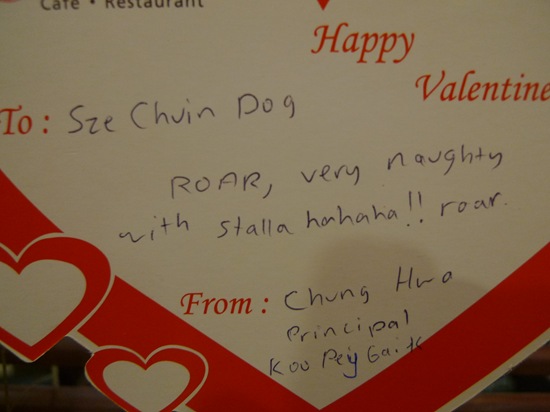 Cafe • Restaurant
Happy
Valentine
To : Sze Chuin Dog
ROAR, very naughty
with stalla hahaha!! roar.
From : Chung Hwa
Principal
Koo Pey Gaik